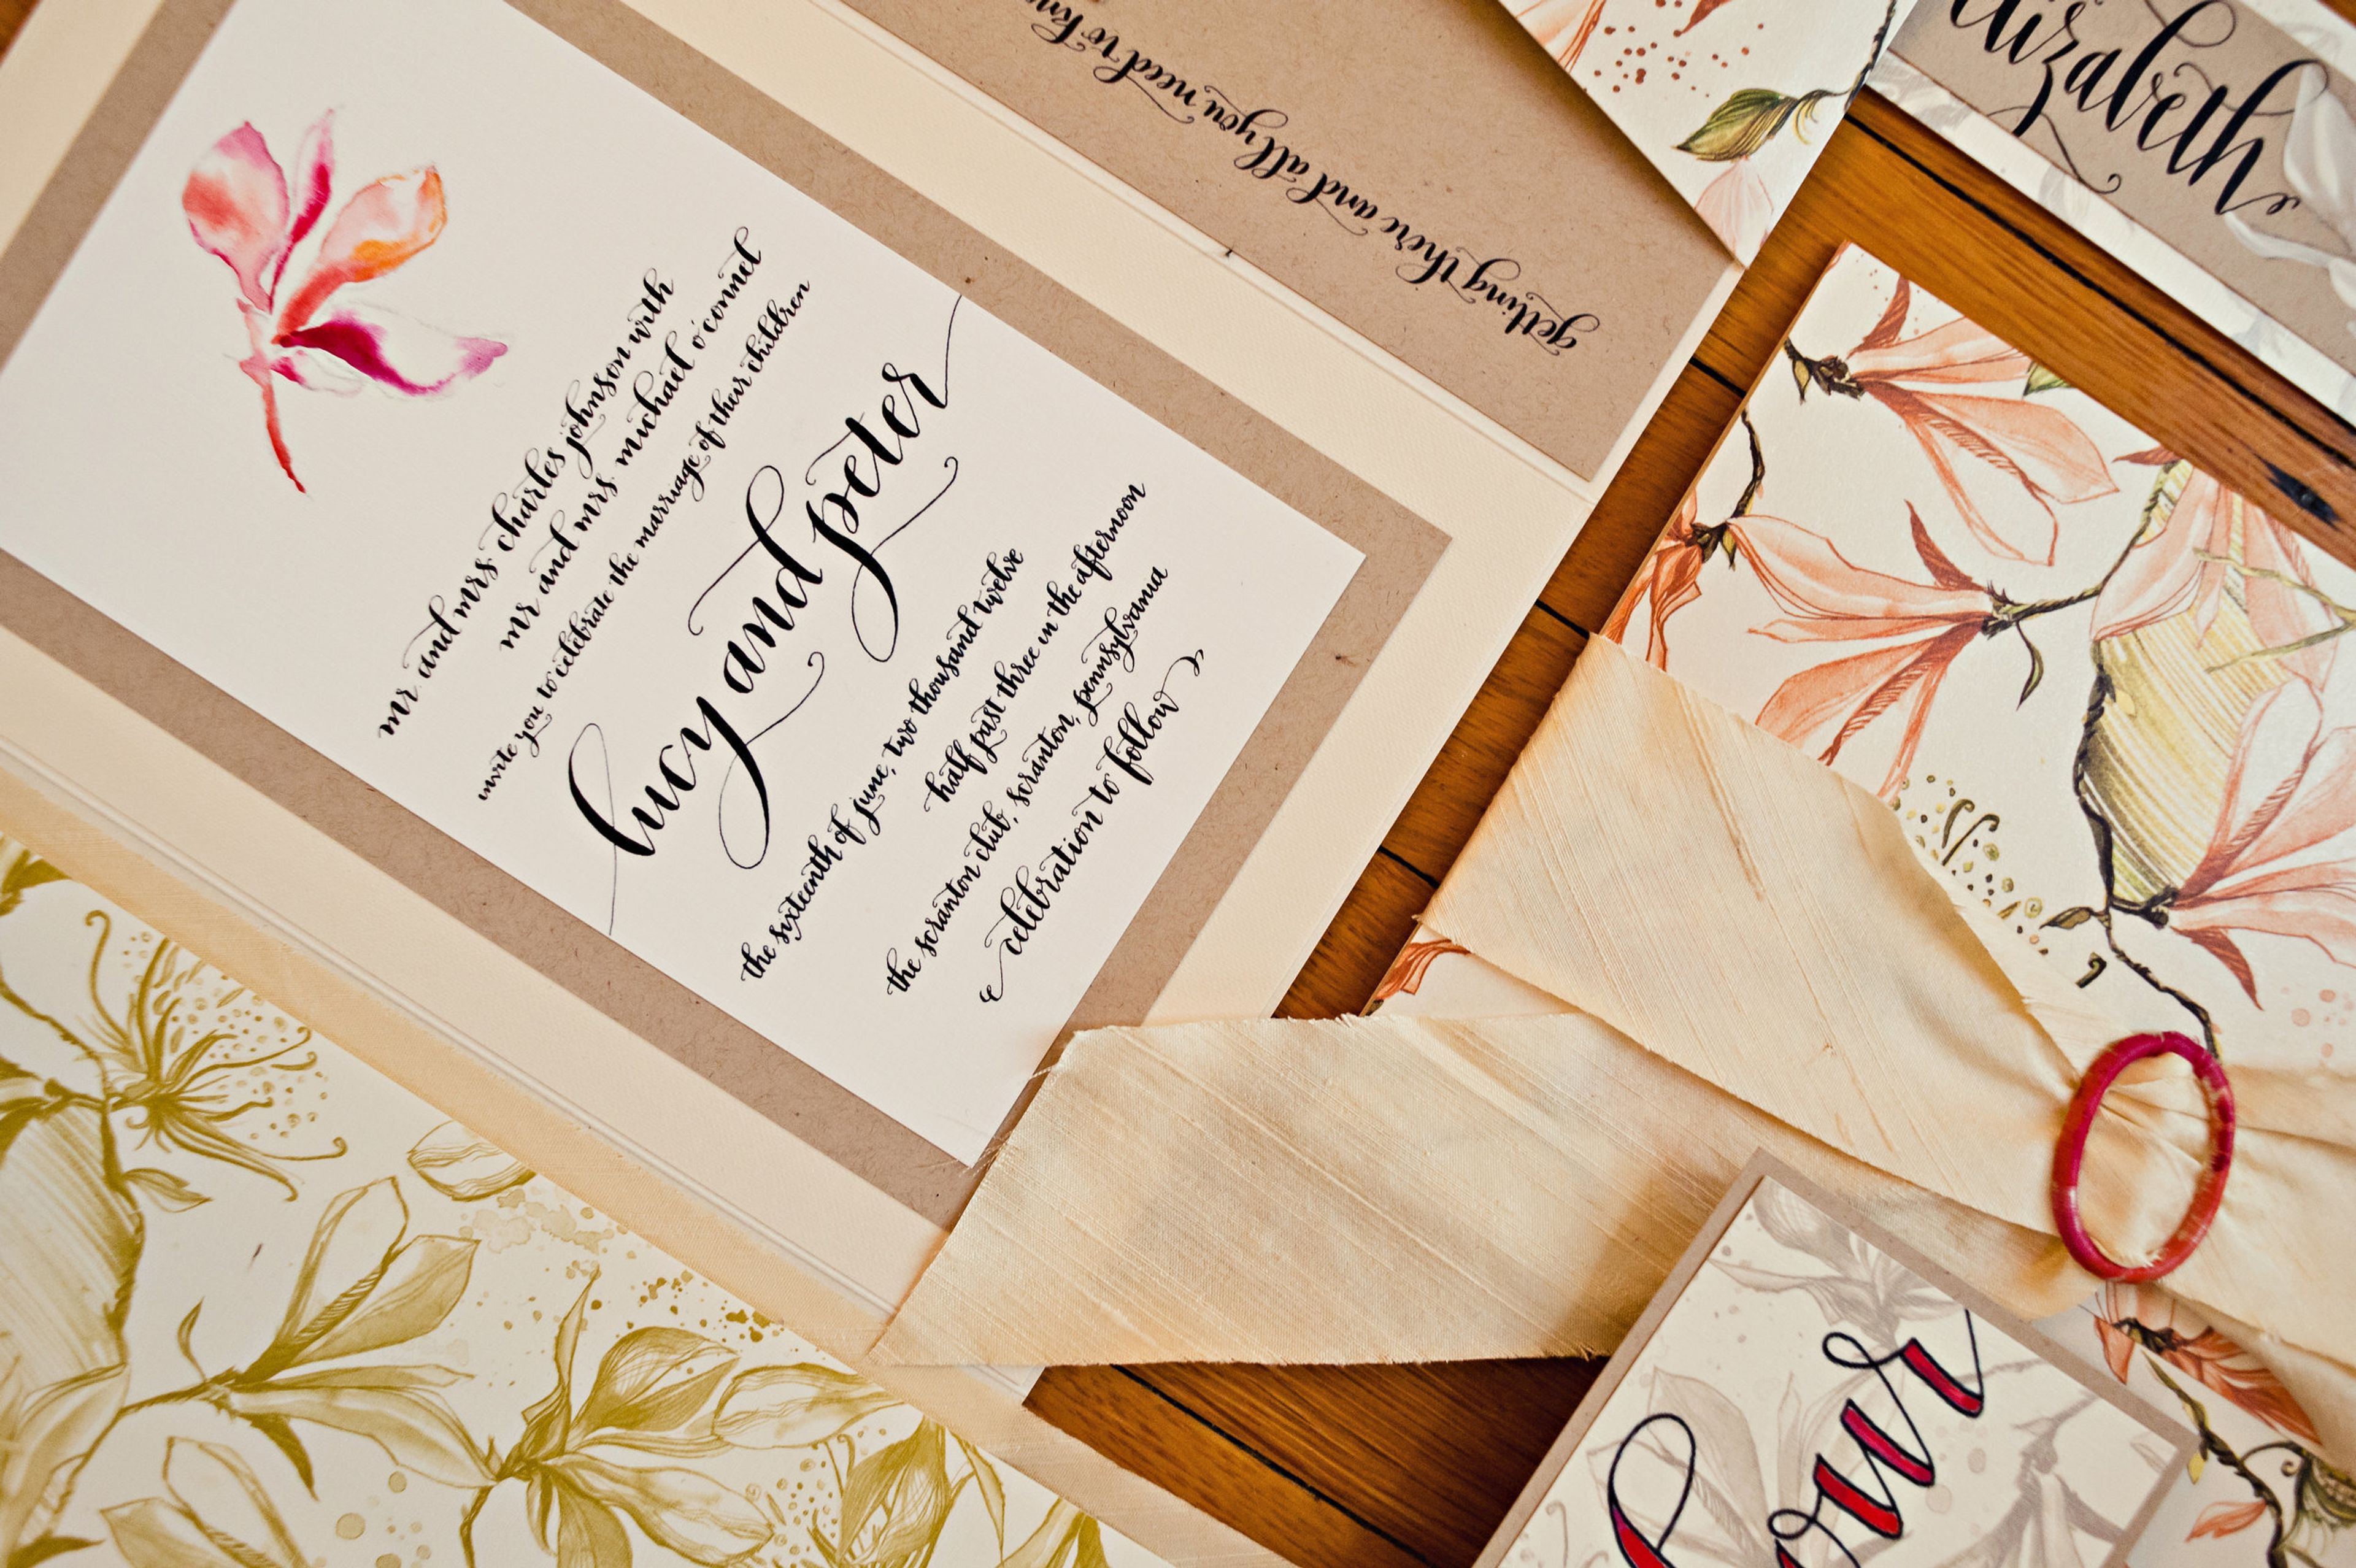 mr and mrs charles johnson with
mr and mrs michael o'connel
invite you to celebrate the marriage of their children
lucy and peter
the sixteenth of june, two thousand twelve
half past three in the afternoon
the scranton club, scranton, pennsylvania
celebration to follow
getting there and all you need to
elizabeth